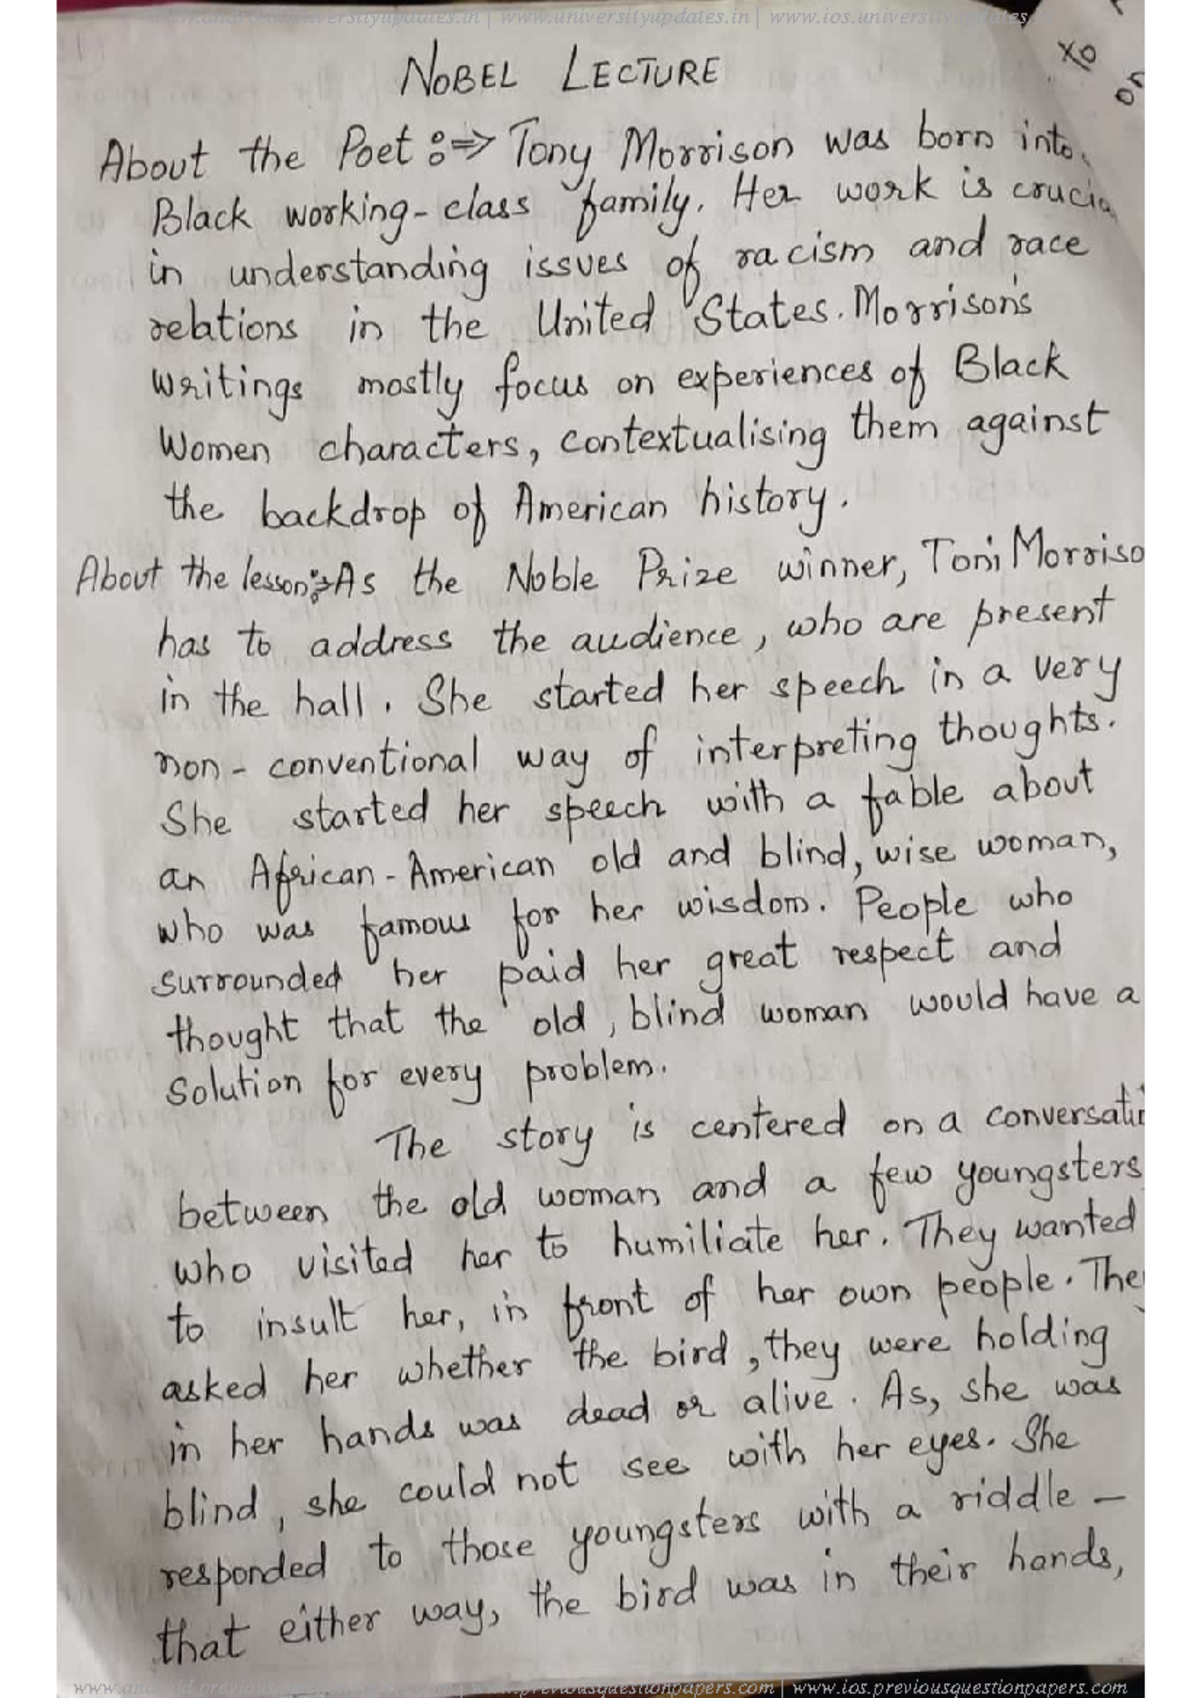 www.android.universityupdates.in | www.universityupdates.in | www.ios.universityupdates
NOBEL LECTURE
XO
on
About the Poet :⇒ Tony Morrison was born into
Black working-class family. Her work is crucia
in understanding issues of racism and race
relations in the United States. Morrison's
writings mostly focus on experiences of Black
Women characters, contextualising them against
the backdrop of American history.
About the lesson:⇒ As the Noble Prize winner, Toni Morriso
has to address the audience, who are present
in the hall. She started her speech in a very
non-conventional way of interpreting thoughts.
She started her speech with a fable about
an African-American old and blind, wise woman,
who was famous for her wisdom. People who
surrounded her paid her great respect and
thought that the old, blind woman would have a
Solution for every problem.
The story is centered on a conversati
between the old woman and a few youngsters
who visited her to humiliate her. They wanted
to insult her, in front of her own people. They
asked her whether the bird, they were holding
in her hands was dead or alive. As, she was
blind, she could not see with her eyes. She
responded to those youngsters with a riddle –
that either way, the bird was in their hands,
www.android.previousquestionpapers.com | www.previousquestionpapers.com | www.ios.previousquestionpapers.com